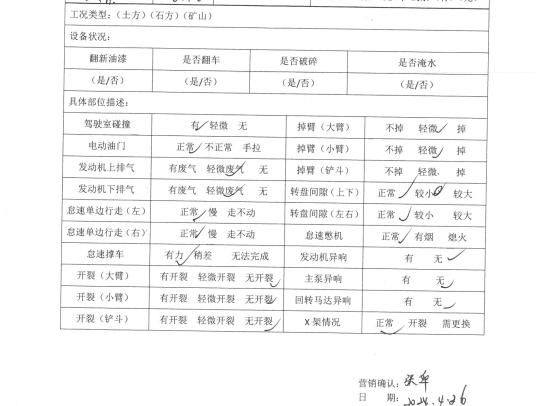 工况类型：（土方）（石方）（矿山）
设备状况：
翻新油漆 是否翻车 是否破碎 是否淹水
（是/否） （是/否） （是/否） （是/否）
具体部位描述：
驾驶室碰撞 有✓轻微 无 掉臂（大臂） 不掉 轻微✓ 掉
电动油门 正常✓ 不正常 手拉 掉臂（小臂） 不掉 轻微✓ 掉
发动机上排气 有废气 轻微废气✓ 无 掉臂（铲斗） 不掉 轻微 掉
发动机下排气 有废气 轻微废气✓ 无 转盘间隙（上下） 正常✓ 较小 较大
怠速单边行走（左） 正常✓ 慢 走不动 转盘间隙（左右） 正常✓ 较小 较大
怠速单边行走（右） 正常✓ 慢 走不动 怠速憋机 正常✓ 有烟 熄火
怠速撑车 有力✓ 稍差 无法完成 发动机异响 有 无✓
开裂（大臂） 有开裂 轻微开裂 无开裂✓ 主泵异响 有 无✓
开裂（小臂） 有开裂 轻微开裂 无开裂✓ 回转马达异响 有 无✓
开裂（铲斗） 有开裂 轻微开裂 无开裂✓ X架情况 正常✓ 开裂 需更换
营销确认：
日 期：2024.4.26